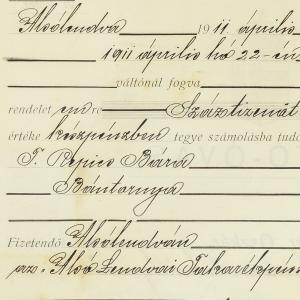 Alsólendva 1911 április
1911 április hó 22-én
váltónál fogva
rendelet en re Száztizenöt
értéke készpénzben tegye számolásba tudó
T. Pepics Bára
Bántornya
Fizetendő Alsólendván
az „Alsó Lendvai Takarékpénz